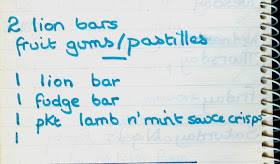 2 lion bars
fruit gums/pastilles
1 lion bar
1 fudge bar
1 pkt lamb n' mint sauce crisps
1